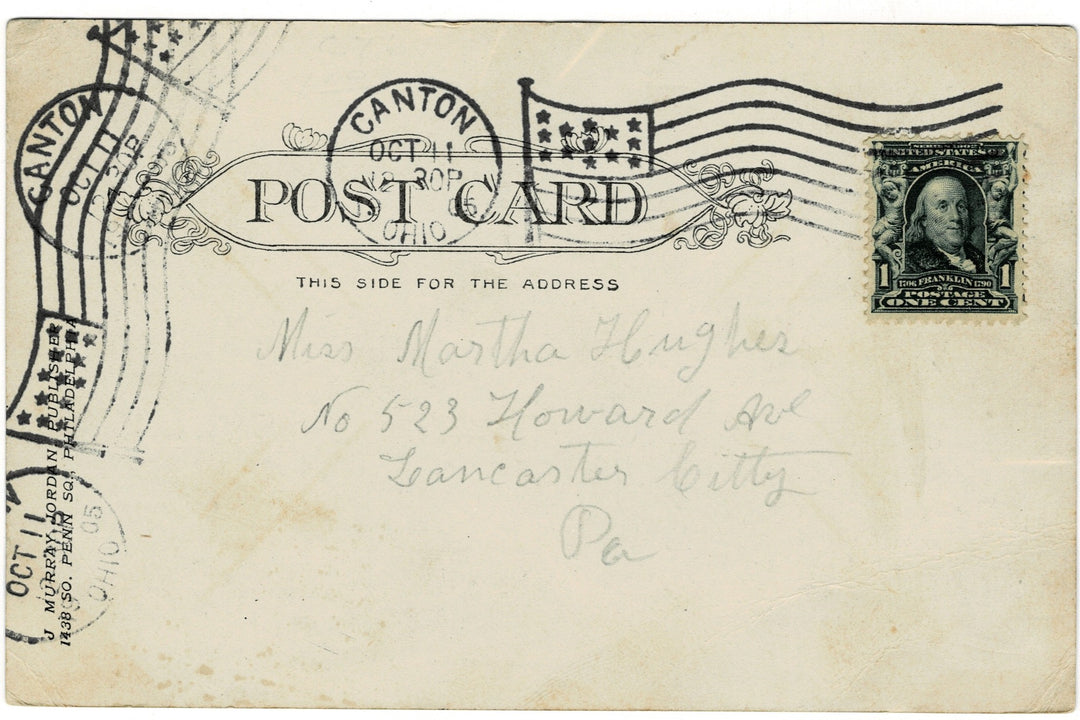 CANTON
OCT 11
30P
OHIO
POST CARD
THIS SIDE FOR THE ADDRESS
SERIES 1902
UNITED STATES OF
AMERICA
1 1
1706 FRANKLIN 1790
POSTAGE
ONE CENT
Miss Martha Hughes
No 523 Howard Ave
Lancaster Citty
Pa
CANTON
OCT 11
30P
J MURRAY JORDAN PUBLISHER
1438 SO. PENN SQ., PHILADELPHIA
OCT 11
05
OHIO